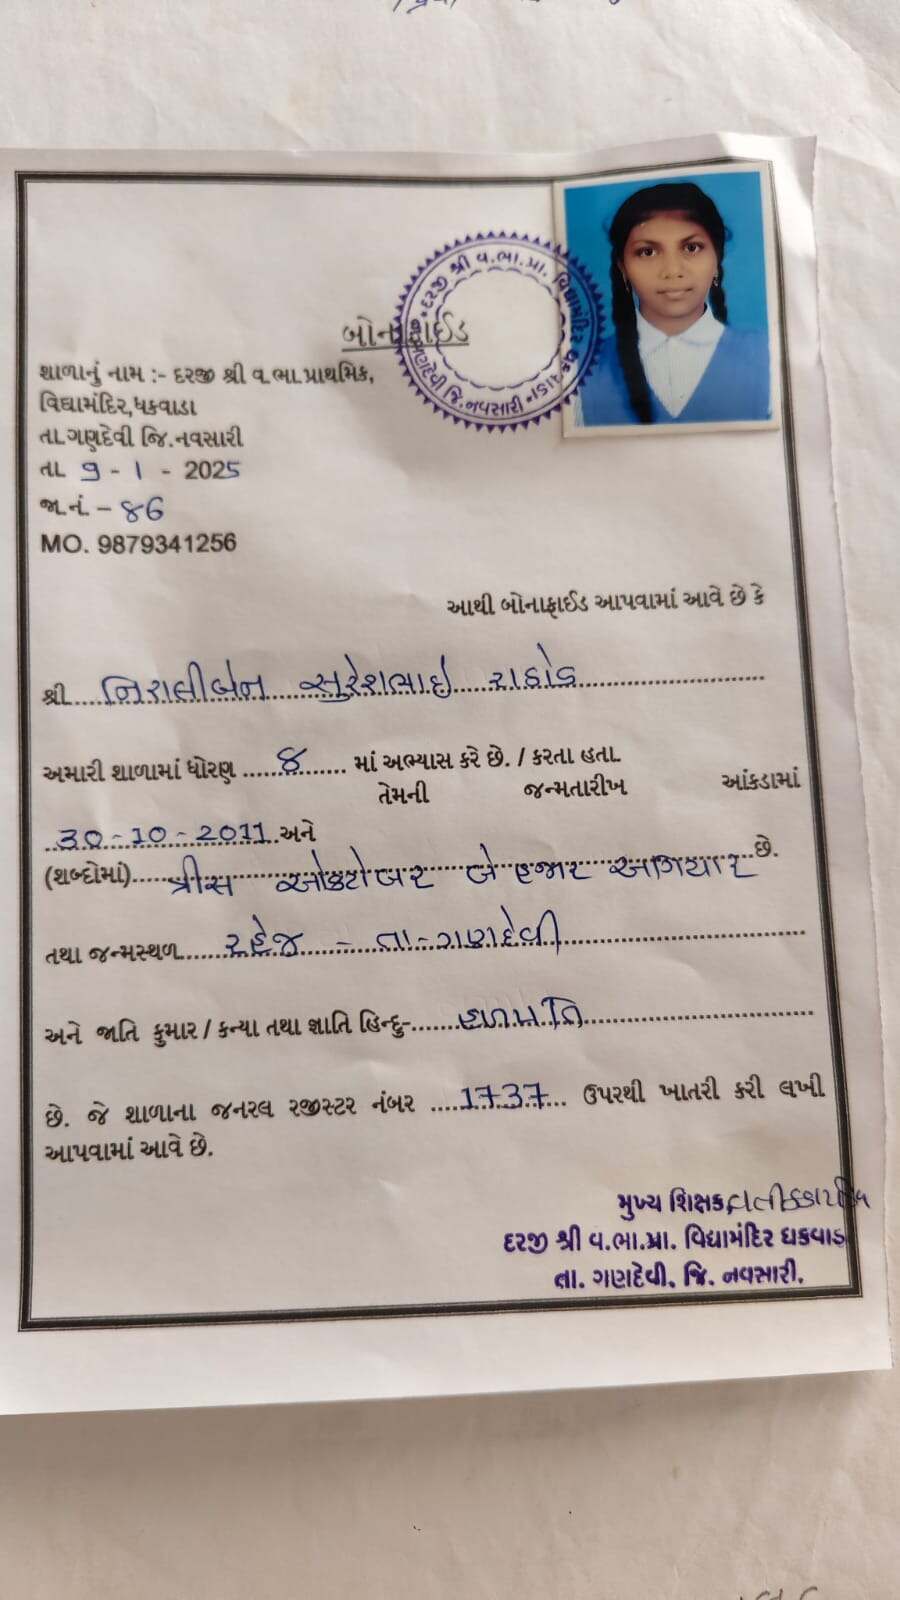 બોનાફાઈડ
દરજી શ્રી વ.ભા.પ્રા. વિદ્યામંદિર ધકવાડા તા.ગણદેવી જિ.નવસારી
શાળાનું નામ :- દરજી શ્રી વ.ભા.પ્રાથમિક,
વિદ્યામંદિર,ધકવાડા
તા.ગણદેવી જિ.નવસારી
તા. 9 - 1 - 2025
જા.નં. – ૪6
MO. 9879341256
આથી બોનાફાઈડ આપવામાં આવે છે કે
શ્રી....નિરાલીબેન સુરેશભાઇ રાઠોડ
અમારી શાળામાં ધોરણ ....૪.... માં અભ્યાસ કરે છે. / કરતા હતા.
તેમની જન્મતારીખ આંકડામાં
30-10-2011 અને
(શબ્દોમાં)....ત્રીસ ઓક્ટોબર બે હજાર અગિયાર છે.
તથા જન્મસ્થળ....રહેજ - તા-ગણદેવી
અને જાતિ કુમાર / કન્યા તથા જ્ઞાતિ હિન્દુ-....હળપતિ
છે. જે શાળાના જનરલ રજીસ્ટર નંબર ....1737.... ઉપરથી ખાતરી કરી લખી
આપવામાં આવે છે.
મુખ્ય શિક્ષક,
દરજી શ્રી વ.ભા.પ્રા. વિદ્યામંદિર ધકવાડા
તા. ગણદેવી, જિ. નવસારી.